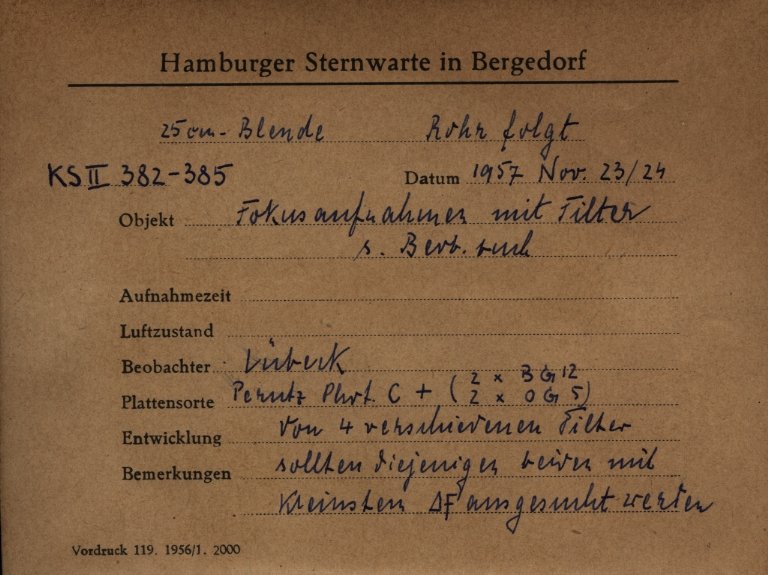 Hamburger Sternwarte in Bergedorf
25cm-Blende Rohr folgt
KS II 382-385 Datum 1957 Nov. 23/24
Objekt Fokusaufnahmen mit Filter
s. Beob. buch
Aufnahmezeit
Luftzustand
Beobachter Lübeck
Plattensorte Perutz Phot. C + (2 x BG 12
2 x OG 5)
Entwicklung Von 4 verschiedenen Filter
Bemerkungen sollten diejenigen beiden mit
kleinsten ΔF ausgesucht werden
Vordruck 119. 1956/1. 2000